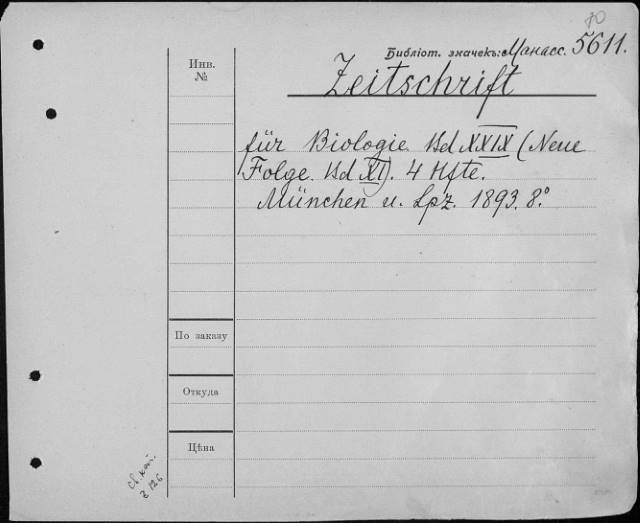 70
Библіот. значекъ: Манасс. 5611.
Инв.
№
Zeitschrift
für Biologie. Bd XXIX (Neue
Folge. Bd XI). 4 Hfte.
München u. Lpz. 1893. 8°.
По заказу
Откуда
Цѣна